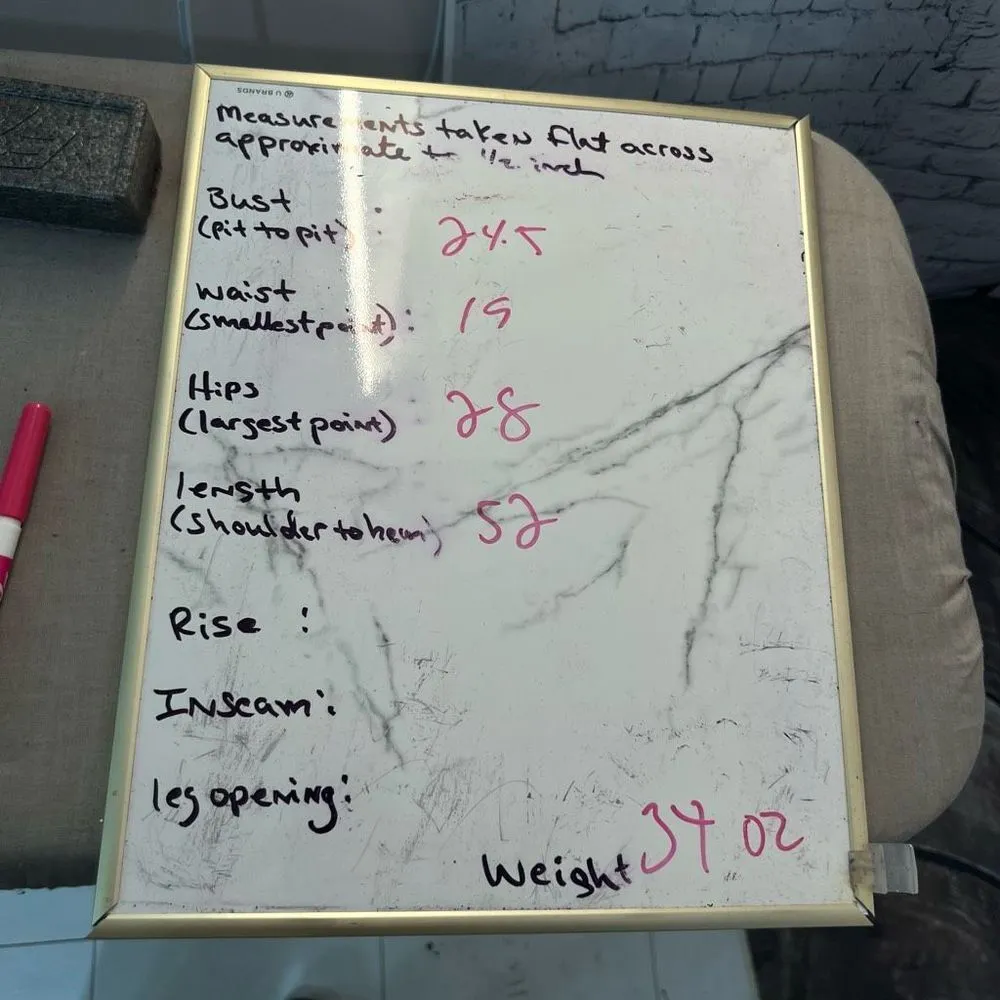 U BRANDS
Measurements taken flat across
approximate to 1/2 inch
Bust
(pit to pit) : 24.5
waist
(smallest point) : 19
Hips
(largest point) 28
length
(shoulder to hem) 52
Rise :
Inseam :
leg opening :
Weight 34 oz